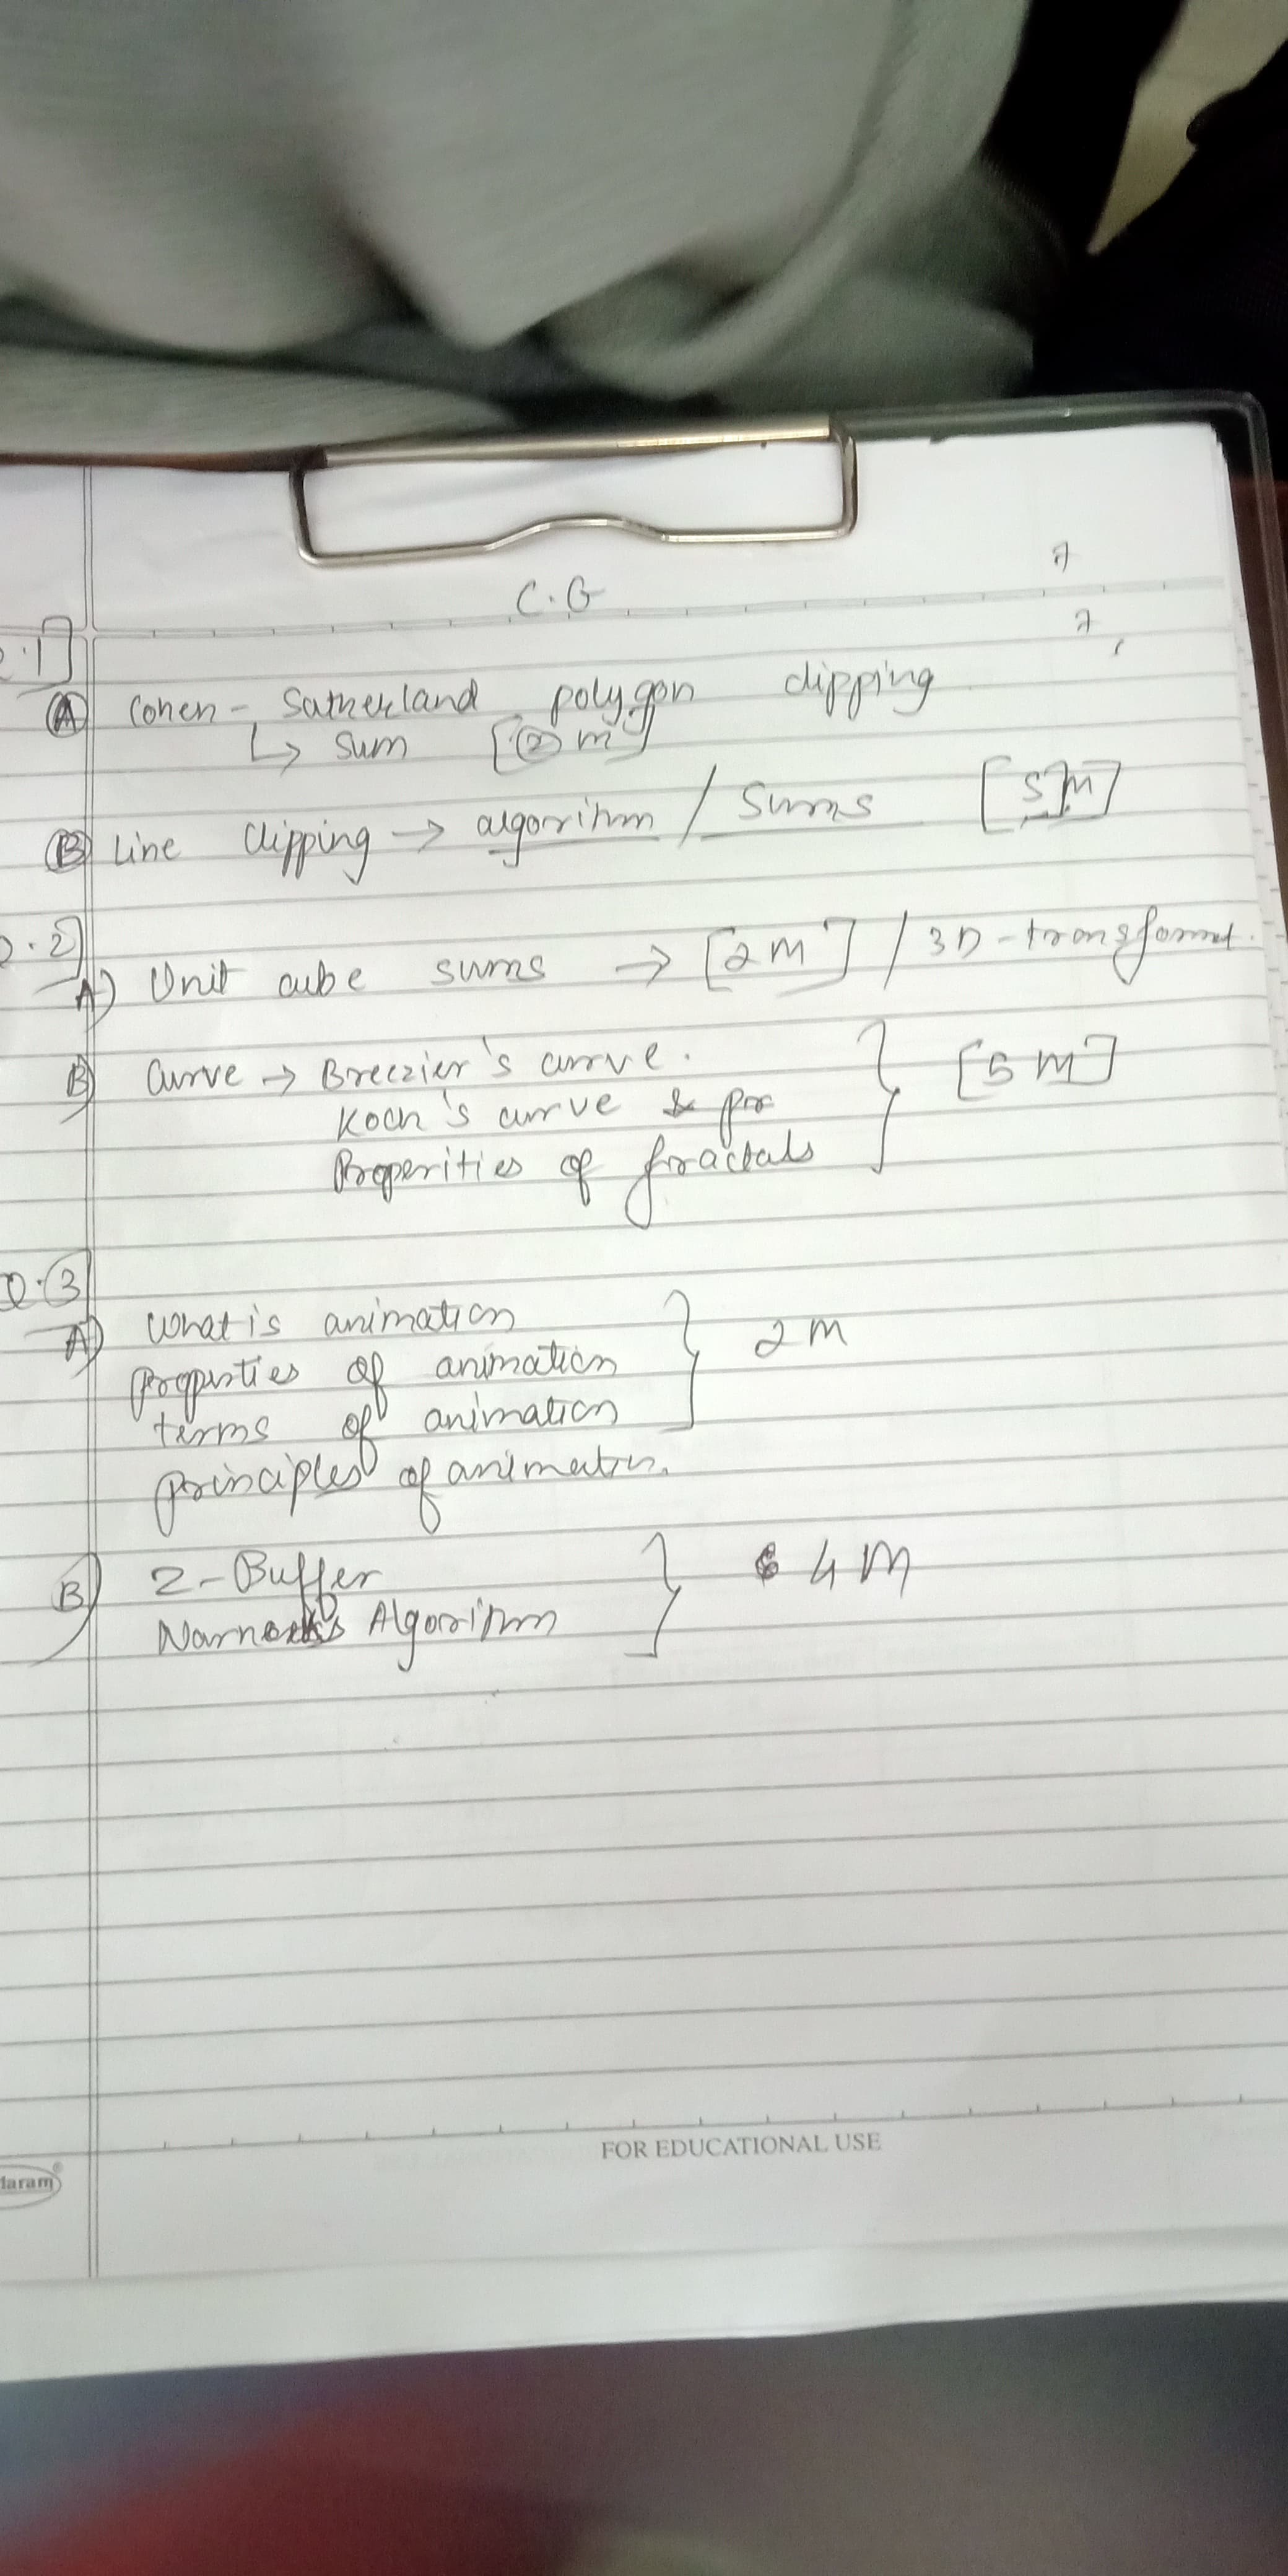 C.G
.1]
(A) Cohen - Sutherland polygon clipping
↳ sum [② m]
(B) Line Clipping → algorithm / Sums [5M]
Q.2]
A) Unit cube sums → [2M] / 3D-transformt.
B) Curve → Breezier's curve.
Koch's curve & pro
Properities of fractals
} [5M]
Q.3
A) What is animation
properties of animation
terms of animation
} 2M
principles of animatn.
B) Z-Buffer
Algorithm
} 4M
FOR EDUCATIONAL USE
daram®